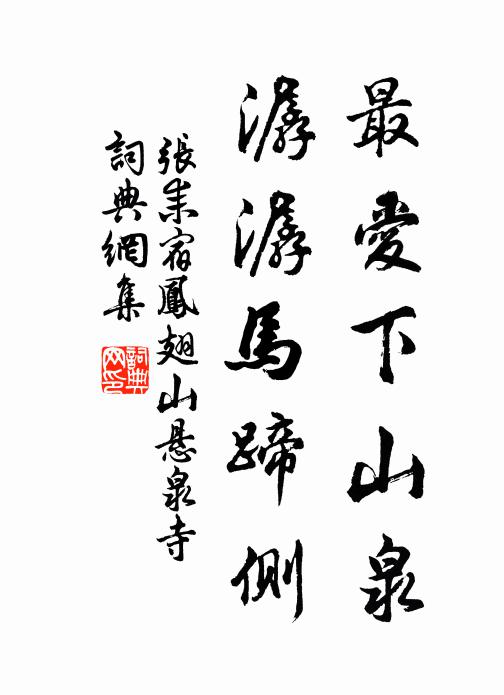 最愛下山泉
潺潺馬蹄側
張耒宿鳳翅山懸泉寺
詞典網集
詞典网印